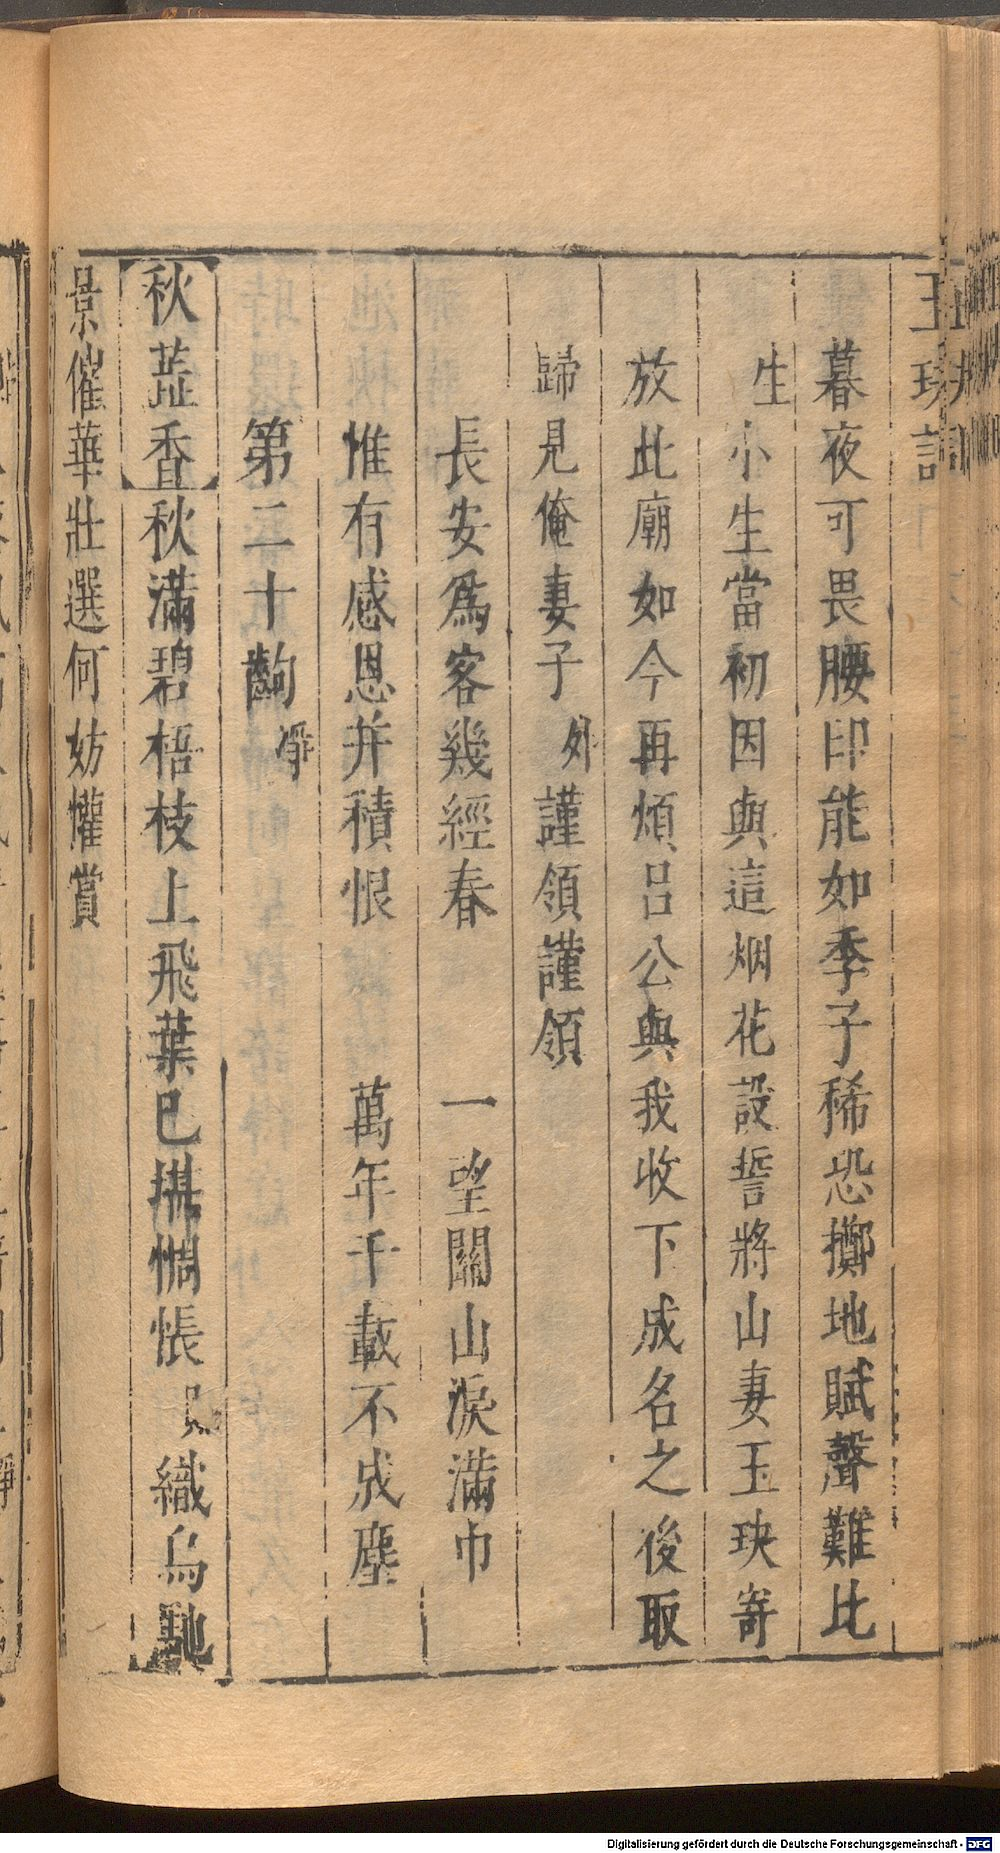 玉玦記
暮夜可畏腰印能如季子稀恐擲地賦聲難比
生小生當初因與這烟花設誓將山妻玉玦寄
放此廟如今再煩呂公與我收下成名之後取
歸見俺妻子外謹領謹領
長安爲客幾經春 一望關山淚滿巾
惟有感恩并積恨 萬年千載不成塵
第二十齣淨
秋蕋香秋滿碧梧枝上飛葉已掛惆悵織烏馳
景催華壯選何妨懽賞
Digitalisierung gefördert durch die Deutsche Forschungsgemeinschaft - DFG